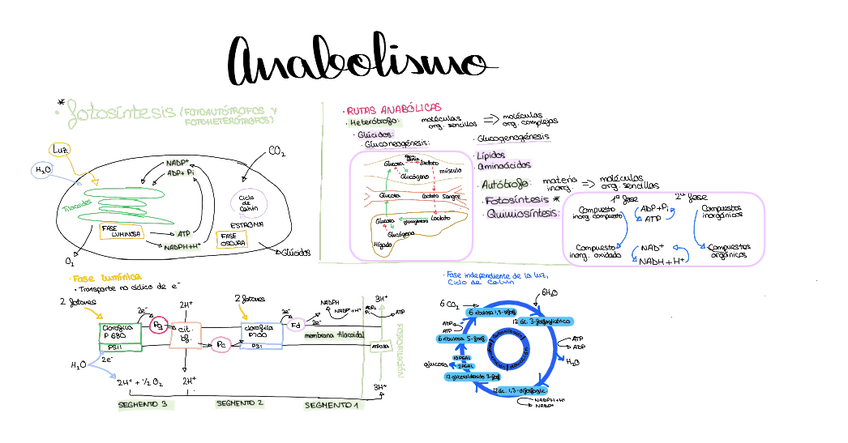 Anabolismo
* fotosíntesis (FOTOAUTÓTROFOS Y
FOTOHETERÓTROFOS)
Luz
H₂O
CO₂
NADP⁺
ADP + Pi
Tilacoides
FASE
LUMINOSA
ATP
NADPH+H⁺
Ciclo
de
Calvin
ESTROMA
FASE
OSCURA
O₂
Glúcidos
· RUTAS ANABÓLICAS
· Heterótrofo: moléculas org. sencillas ⇒ moléculas org. complejas
· Glúcidos:
· Gluconeogénesis:
· Glucogenogénesis
· Lípidos
· Aminoácidos
Glucosa
Lactato
Glucógeno
músculo
Glucosa
Lactato
Sangre
Glucosa
Lactato
Glucógeno
Hígado
· Autótrofo: materia inorg. ⇒ moléculas org. sencillas
· Fotosíntesis *
· Quimiosíntesis:
1ª fase
2ª fase
Compuesto
inorg. compuesto
ADP+Pi
ATP
Compuestos
inorgánicos
Compuesto
inorg. oxidado
NAD⁺
NADH + H⁺
Compuestos
orgánicos
· Fase lumínica
· Transporte no cíclico de e⁻
2 fotones
2e⁻
2H⁺
2 fotones
2e⁻
NADPH
NADP⁺+H⁺
3H⁺
ATP
clorofila
P 680
PSII
Pq
cit.
bf
Pc
clorofila
P700
PSI
Fd
2e⁻
membrana tilacoidal
2e⁻
H₂O
2H⁺ + ½ O₂
2H⁺
3H⁺
SEGMENTO 3
SEGMENTO 2
SEGMENTO 1
· Fase independiente de la luz,
Ciclo de Calvin
6 CO₂
6H₂O
6 ribulosa 1,5-difosf
12 ác. 3-fosfoglicérico
ATP
ADP
6 ribulosa 5-fosf
ATP
ADP
H₂O
glucosa
NADPH+H⁺
NADP⁺